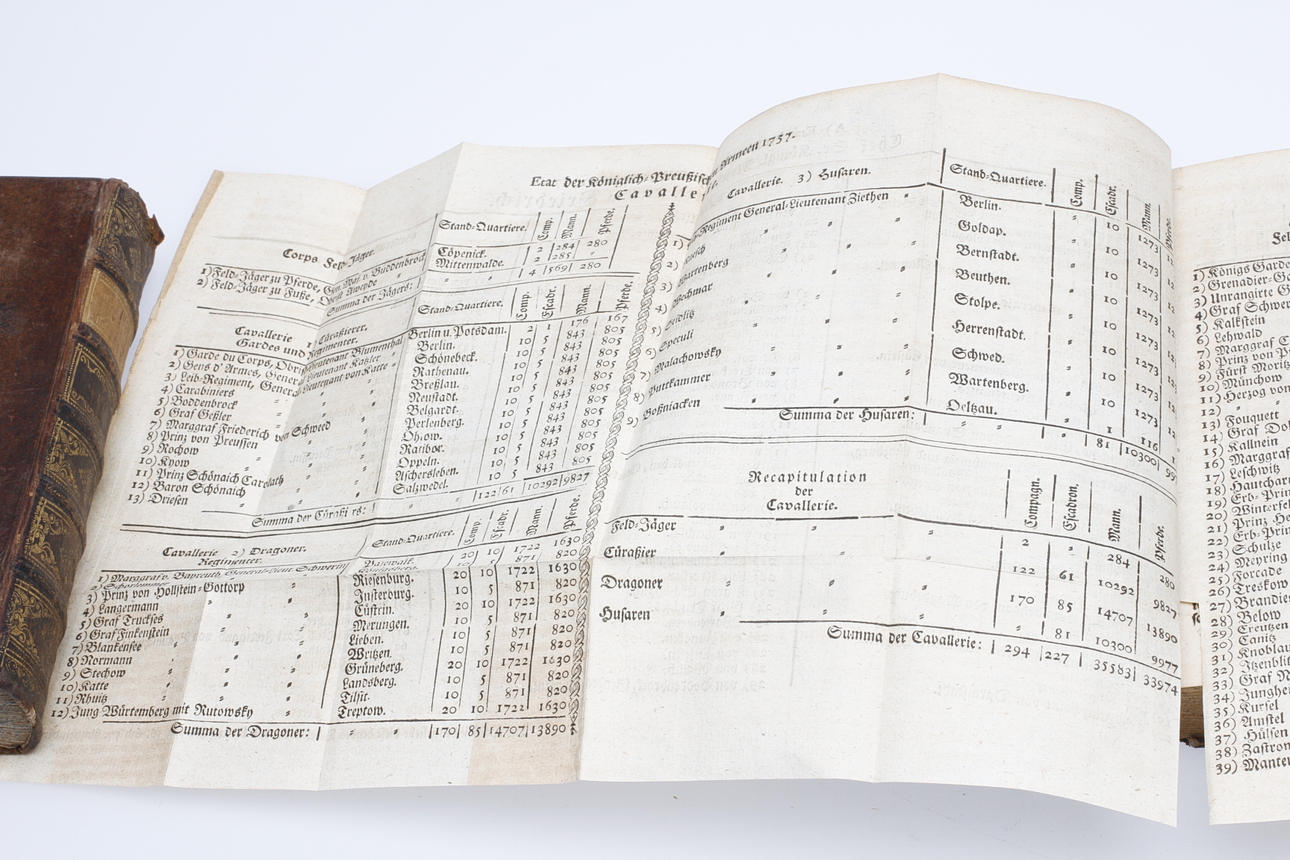 Etat der Königlich-Preußisch
Cavalle
Corps Feld-Jäger.
Stand-Quartiere. Comp. Mann. Pferde.
1) Feld-Jäger zu Pferde, Gen. Maj. v. Buddenbrock Cöpenick. 2 284 280
2) Feld-Jäger zu Fuße, Mittenwalde. 2 285 „
Summa der Jägers: 4 569 280
Cavallerie 1) Cüraßierer.
Gardes und Regimenter.
Stand-Quartiere. Comp. Escadr. Mann. Pferde.
1) Garde du Corps, Berlin u. Potsdam. 2 1 176 167
2) Gens d'Armes, Berlin. 10 5 843 805
3) Leib-Regiment, Schönebeck. 10 5 843 805
4) Carabiniers Rathenau. 10 5 843 805
5) Boddenbrock Breßlau. 10 5 843 805
6) Graf Geßler Neustadt. 10 5 843 805
7) Marggraf Friederich von Schweed Belgardt. 10 5 843 805
8) Prinz von Preussen Perlenberg. 10 5 843 805
9) Rochow 10 5 843 805
10) Kyow Ratibor. 10 5 843 805
11) Prinz Schönaich Carolath Oppeln. 10 5 843 805
12) Baron Schönaich Aschersleben. 10 5 843 805
13) Driesen Salzwedel. 10 5 843 805
Summa der Cüraßirs: 122 61 10292 9827
Cavallerie 2) Dragoner.
Regimenter.
Stand-Quartiere. Comp. Escadr. Mann. Pferde.
1) Marggraf v. Bayreuth, General-Lieut. Schwerin Pasewalk. 20 10 1722 1630
871 820
3) Prinz von Hollstein-Gottorp Riesenburg. 20 10 1722 1630
4) Langermann Insterburg. 10 5 871 820
5) Graf Truckses Cüstrin. 20 10 1722 1630
6) Graf Finkenstein Merungen. 10 5 871 820
7) Blankensee Lieben. 10 5 871 820
8) Normann Writzen. 10 5 871 820
9) Stechow Grüneberg. 20 10 1722 1630
10) Katte Landsberg. 10 5 871 820
11) Rhuitz Tilsit. 10 5 871 820
12) Jung Würtemberg mit Rutowsky Treptow. 20 10 1722 1630
Summa der Dragoner: 170 85 14707 13890
Armeen 1757.
Cavallerie. 3) Husaren.
Stand-Quartiere. Comp. Escadr. Mann. Pferde.
1) Regiment General-Lieutenant Ziethen Berlin. „ 10 1273
2) Goldap. „ 10 1273
3) Wartenberg Bernstadt. „ 10 1273
4) Wechmar Beuthen. „ 10 1273
5) Seidlitz Stolpe. „ 10 1273
6) Speculi Herrenstadt. „ 10 1273
7) Malachowsky Schwed. „ 10 1273
8) Puttkammer Wartenberg. „ 10 1273
9) Boßniacken Oeltzau. „ 1 116
Summa der Husaren: „ 81 10300 99
Recapitulation
der
Cavallerie.
Compagn. Escadron. Mann. Pferde.
Feld-Jäger 2 „ 284 280
Cüraßier 122 61 10292 9827
Dragoner 170 85 14707 13890
Husaren „ 81 10300 9977
Summa der Cavallerie: 294 227 35583 33974
Fel
1) Königs Garde
2) Grenadier-G
3) Unrangirte G
4) Graf Schwer
5) Kalkstein
6) Lehwald
7) Marggraf C
8) Prinz von P
9) Fürst Moritz
10) Münchow
11) Herzog von
12) „
13) Fouquett
14) Graf Doh
15) Kallnein
16) Marggraf
17) Leschwitz
18) Hautchar
19) Erb-Prin
20) Winterfel
21) Prinz He
22) Erb-Prin
23) Schulze
24) Meyring
25) Forcade
26) Treskow
27) Brandies
28) Below
29) Creutzen
30) Canitz
31) Knoblau
32) Itzenblitz
33) Graf N
34) Jungheim
35) Kursel
36) Amstel
37) Hülsen
38) Zastrow
39) Mante